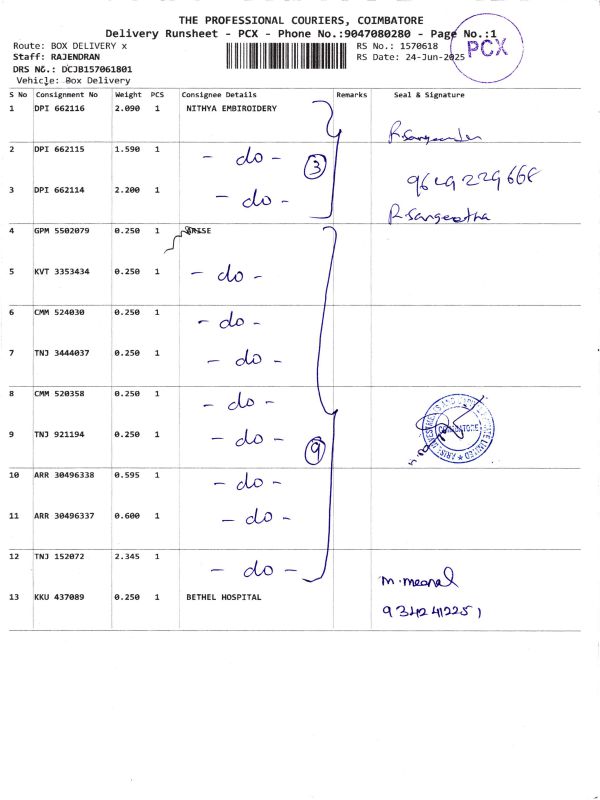 THE PROFESSIONAL COURIERS, COIMBATORE
Delivery Runsheet - PCX - Phone No.:9047080280 - Page No.:1
Route: BOX DELIVERY x
RS No.: 1570618
Staff: RAJENDRAN
RS Date: 24-Jun-2025
PCX
DRS NG.: DCJB157061801
Vehicle: Box Delivery
S No Consignment No Weight PCS Consignee Details Remarks Seal & Signature
1 DPI 662116 2.090 1 NITHYA EMBIROIDERY
2 DPI 662115 1.590 1 - do -
3
3 DPI 662114 2.200 1 - do -
R. Sangeetha
4 GPM 5502079 0.250 1 ARISE
5 KVT 3353434 0.250 1 - do -
6 CMM 524030 0.250 1 - do -
7 TNJ 3444037 0.250 1 - do -
8 CMM 520358 0.250 1 - do -
9 TNJ 921194 0.250 1 - do -
9
COIMBATORE
10 ARR 30496338 0.595 1 - do -
11 ARR 30496337 0.600 1 - do -
12 TNJ 152072 2.345 1 - do -
13 KKU 437089 0.250 1 BETHEL HOSPITAL
9342412251